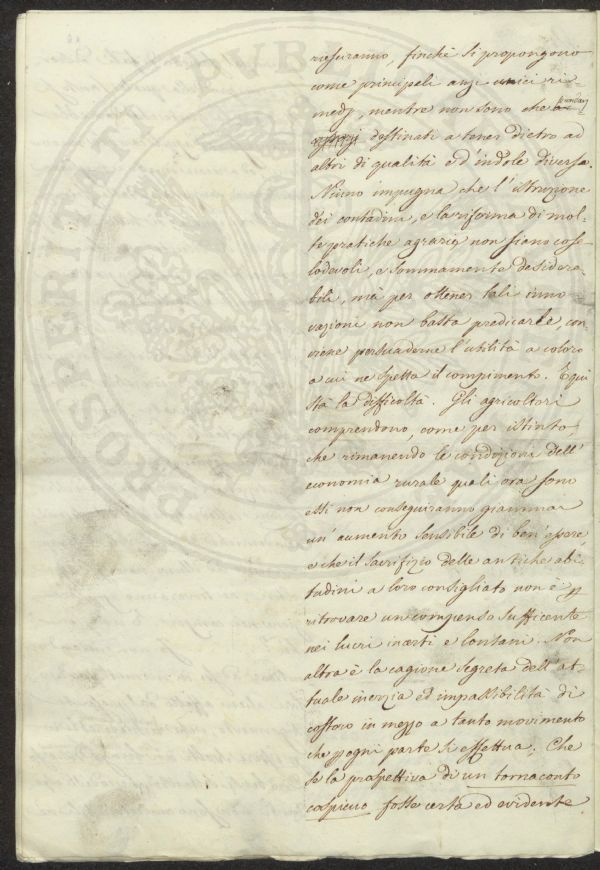 PROSPERITATI PUBLICAE
riesciranno, finchè si propongono
come principali anzi unici ri-
medj, mentre non sono che
destinati a tener dietro ad
altri di qualità ed indole diversa.
Niuno impugna che l'istruzione
dei contadini, e la riforma di mol-
te pratiche agrarie non siano cose
lodevoli, e sommamente desidera
bili, mà per ottener tali inno
vazioni non basta predicarle, con
viene persuaderne l'utilità a coloro
a cui ne spetta il compimento. E quì
stà la difficoltà. Gli agricoltori
comprendono, come per istinto
che rimanendo le condizioni dell'
economia rurale quali ora sono
essi non conseguiranno giammai
un'aumento sensibile di ben'essere
e che il sacrifizio delle antiche abi-
tudini a loro consigliato non è p
ritrovare un compenso sufficente
nei lucri incerti e lontani. Non
altra è la cagione segreta dell'at-
tuale inerzia ed impassibilità di
costoro in mezzo a tanto movimento
che p ogni parte si effettua. Che
se la prospettiva di un tornaconto
cospicuo fosse certa ed evidente